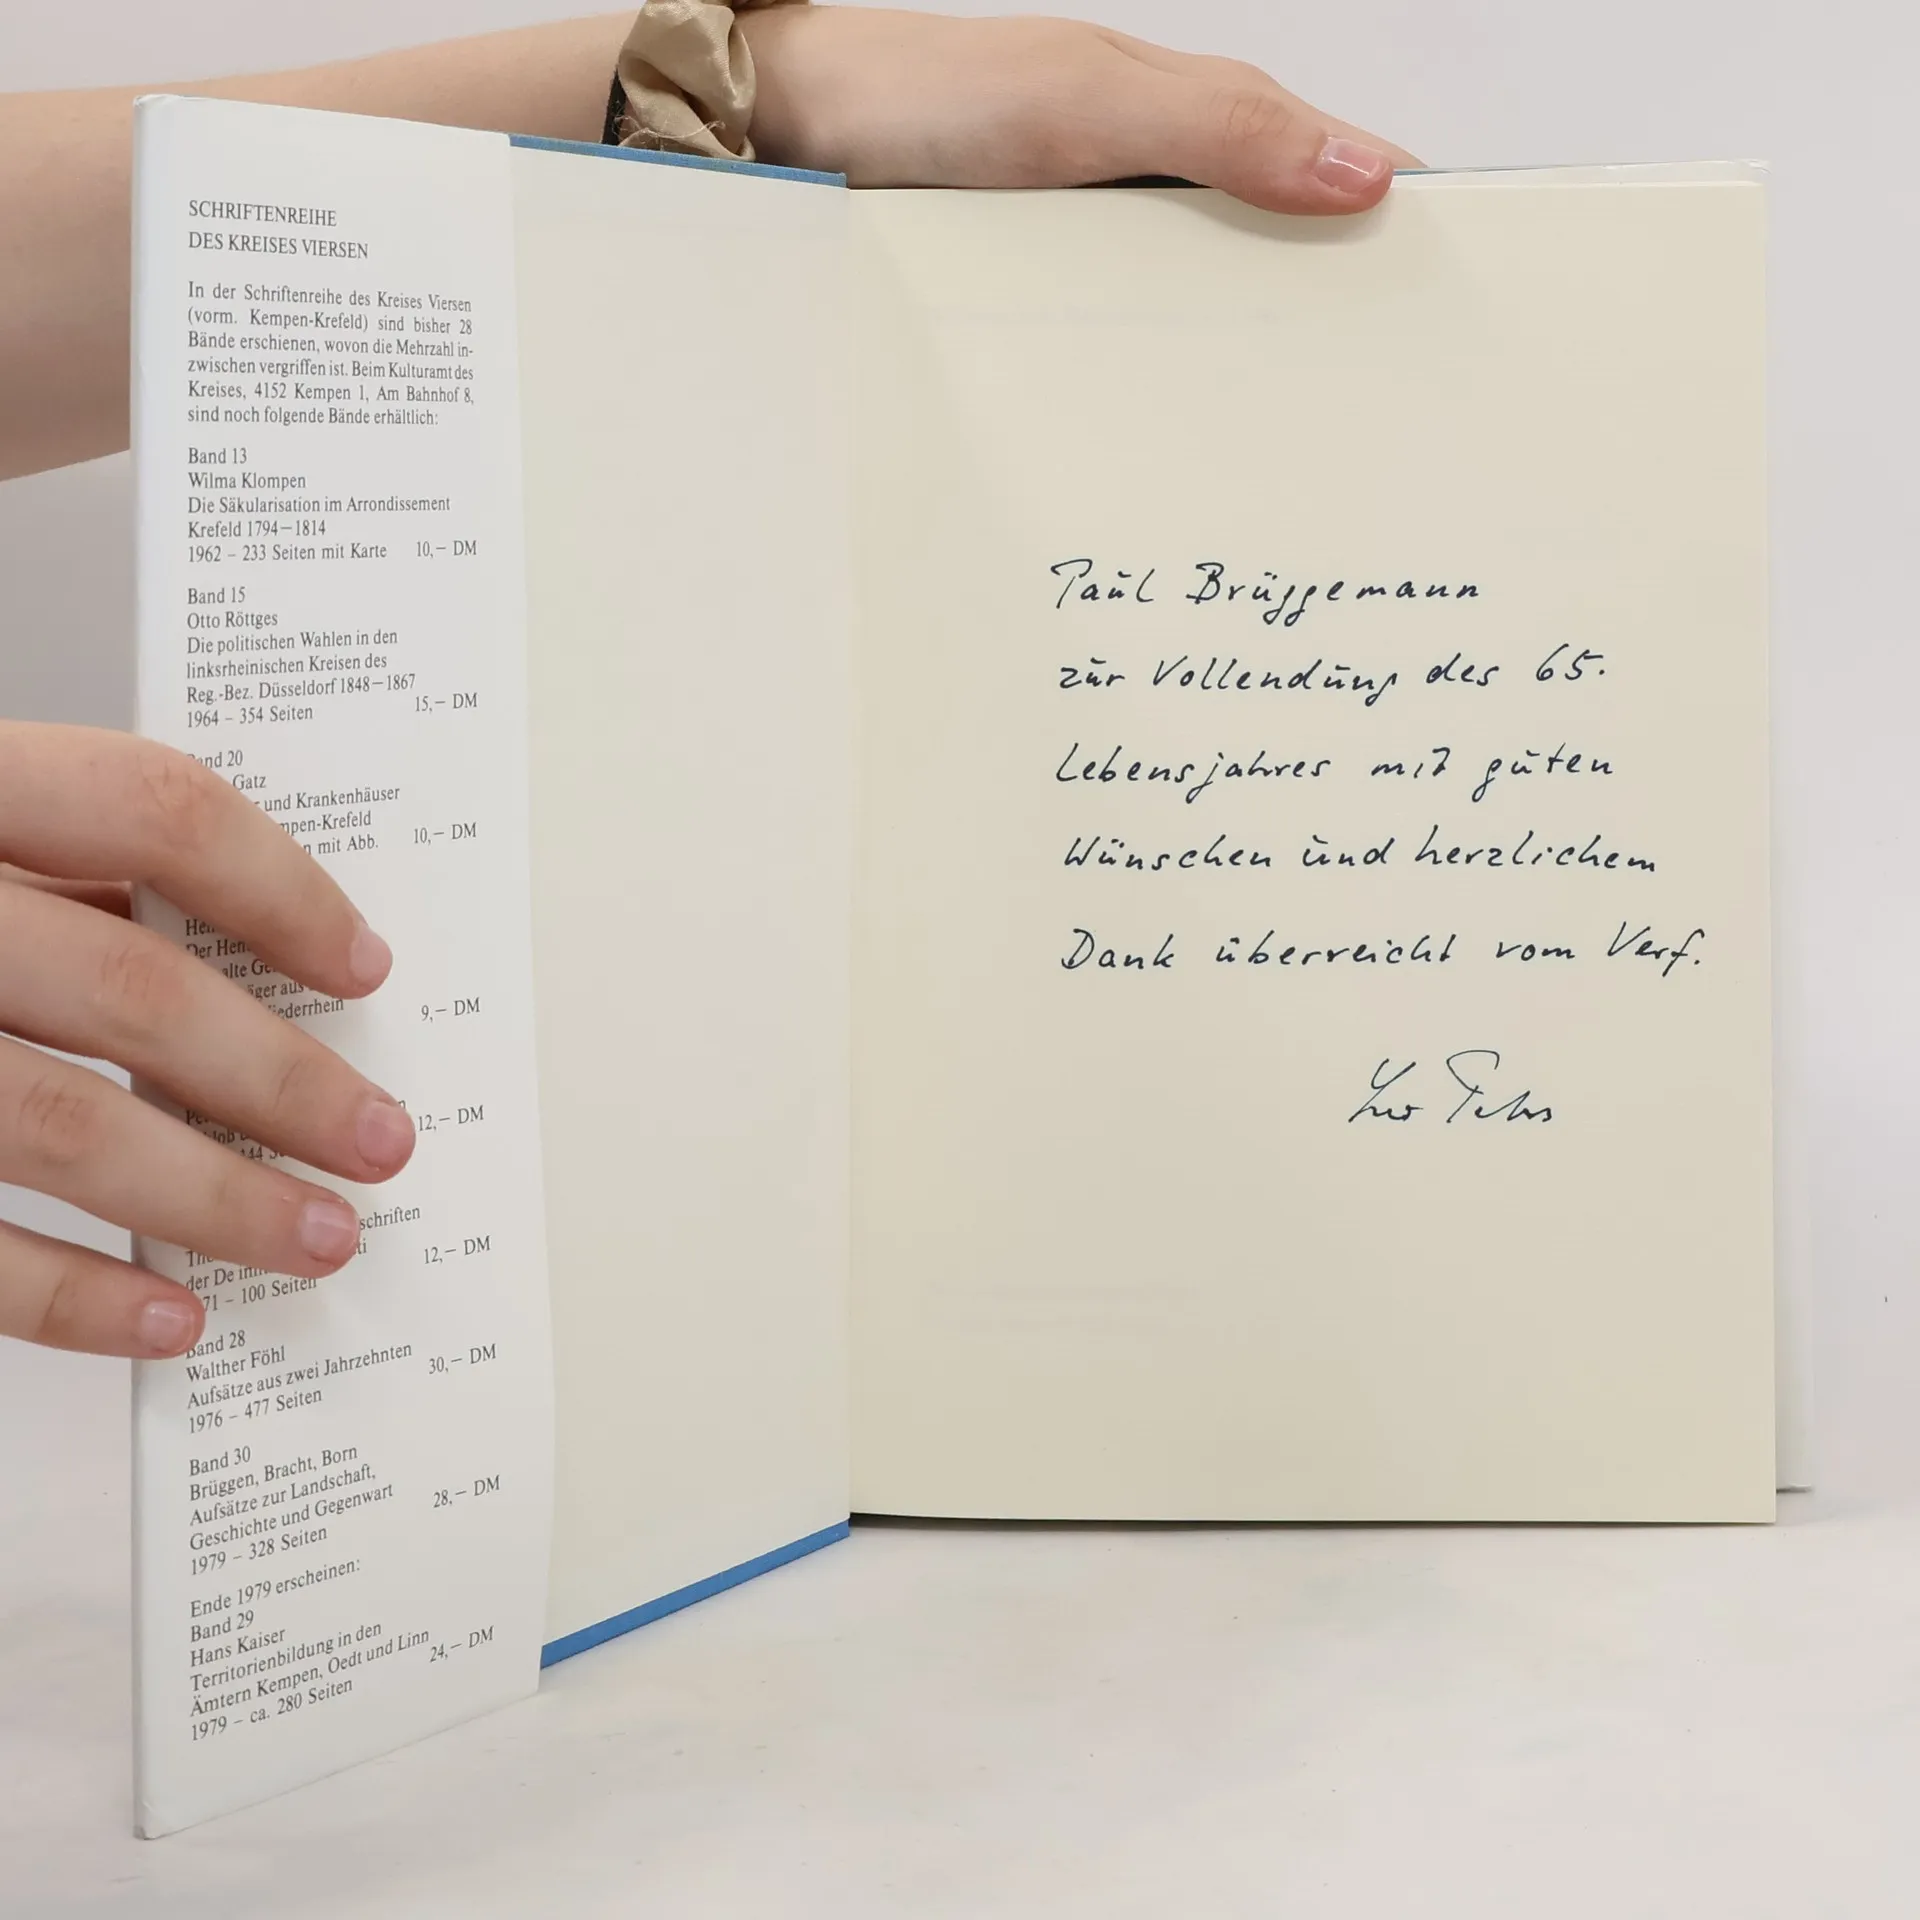 SCHRIFTENREIHE
DES KREISES VIERSEN
In der Schriftenreihe des Kreises Viersen
(vorm. Kempen-Krefeld) sind bisher 28
Bände erschienen, wovon die Mehrzahl in-
zwischen vergriffen ist. Beim Kulturamt des
Kreises, 4152 Kempen 1, Am Bahnhof 8,
sind noch folgende Bände erhältlich:
Band 13
Wilma Klompen
Die Säkularisation im Arrondissement
Krefeld 1794—1814
1962 – 233 Seiten mit Karte 10,— DM
Band 15
Otto Röttges
Die politischen Wahlen in den
linksrheinischen Kreisen des
Reg.-Bez. Düsseldorf 1848—1867
1964 – 354 Seiten 15,— DM
20
Gatz
und Krankenhäuser
mit Abb. 10,— DM
Der
alte
aus
9,— DM
12,— DM
schriften
12,— DM
der
– 100 Seiten
Band 28
Walther Föhl
Aufsätze aus zwei Jahrzehnten
1976 – 477 Seiten 30,— DM
Band 30
Brüggen, Bracht, Born
Aufsätze zur Landschaft,
Geschichte und Gegenwart
1979 – 328 Seiten 28,— DM
Ende 1979 erscheinen:
Band 29
Hans Kaiser
Territorienbildung in den
Ämtern Kempen, Oedt und Linn
1979 – ca. 280 Seiten 24,— DM
Paul Brüggemann
zur Vollendung des 65.
Lebensjahres mit guten
Wünschen und herzlichem
Dank überreicht vom Verf.